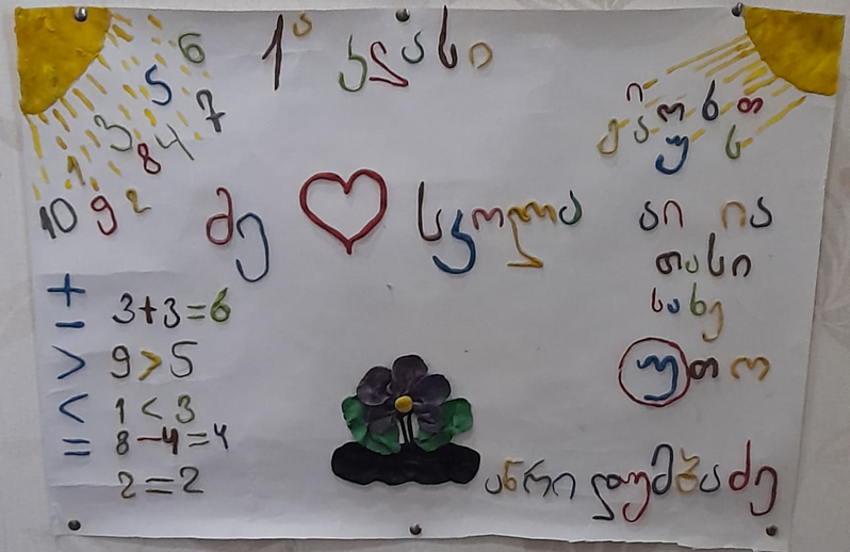 1ა კლასი
6
5 7
3 4
1 8
10 9 2
ი
ქ ა ო ხ თ
უ ს
მე ❤ სკოლა
აი ია
თასი
სახე
უთო
+
- 3+3=6
> 9>5
< 1<3
= 8-4=4
2=2
ანრი დუმბაძე